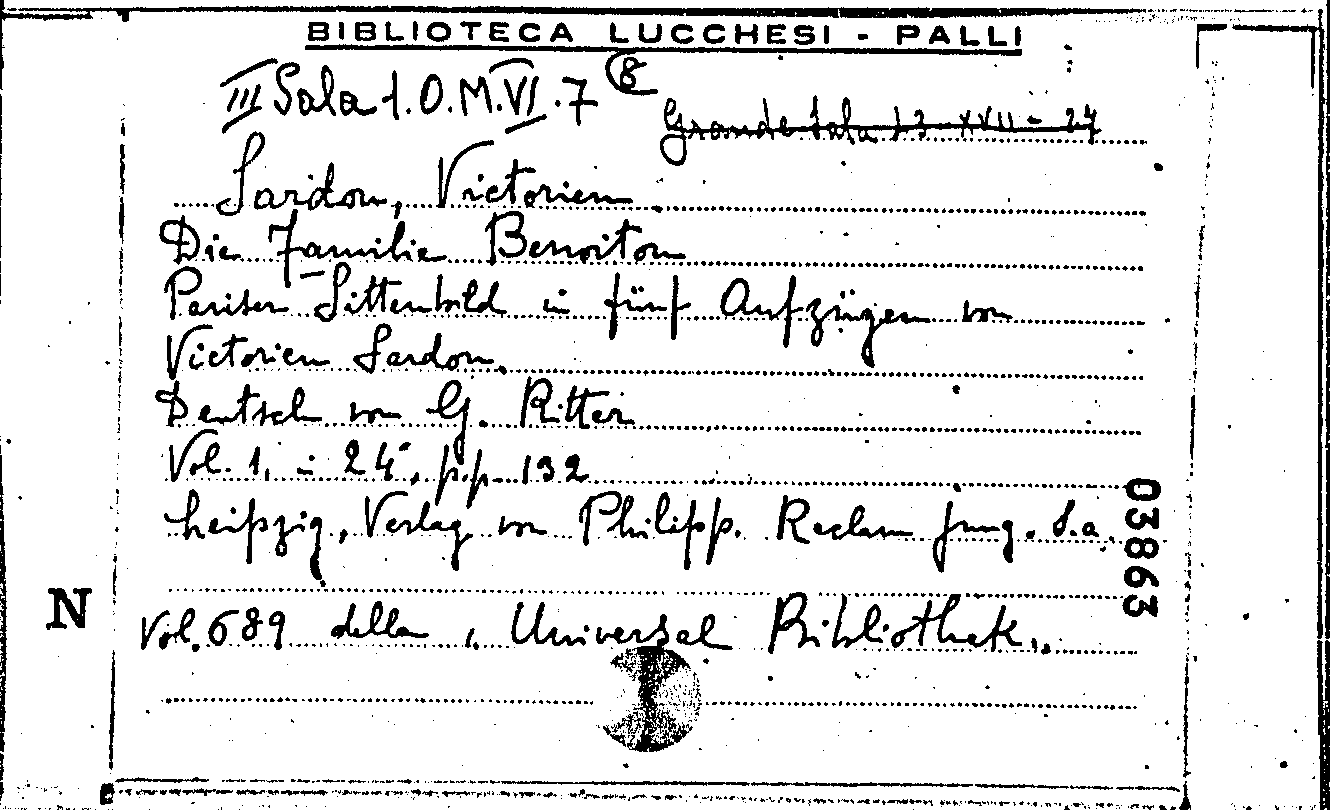 BIBLIOTECA LUCCHESI - PALLI
III Sala 1.O.M.VI.7 (8
Grande Sala 13-XVII-27
Sardou, Victorien.
Die Familie Benoiton
Pariser Sittenbild in fünf Aufzügen von
Victorien Sardou.
Deutsch von G. Ritter
Vol. 1, in 24°, p.p. 132
Leipzig, Verlag von Philipp. Reclam jung. S.a.
03863
N
Vol. 689 della „Universal Bibliothek„